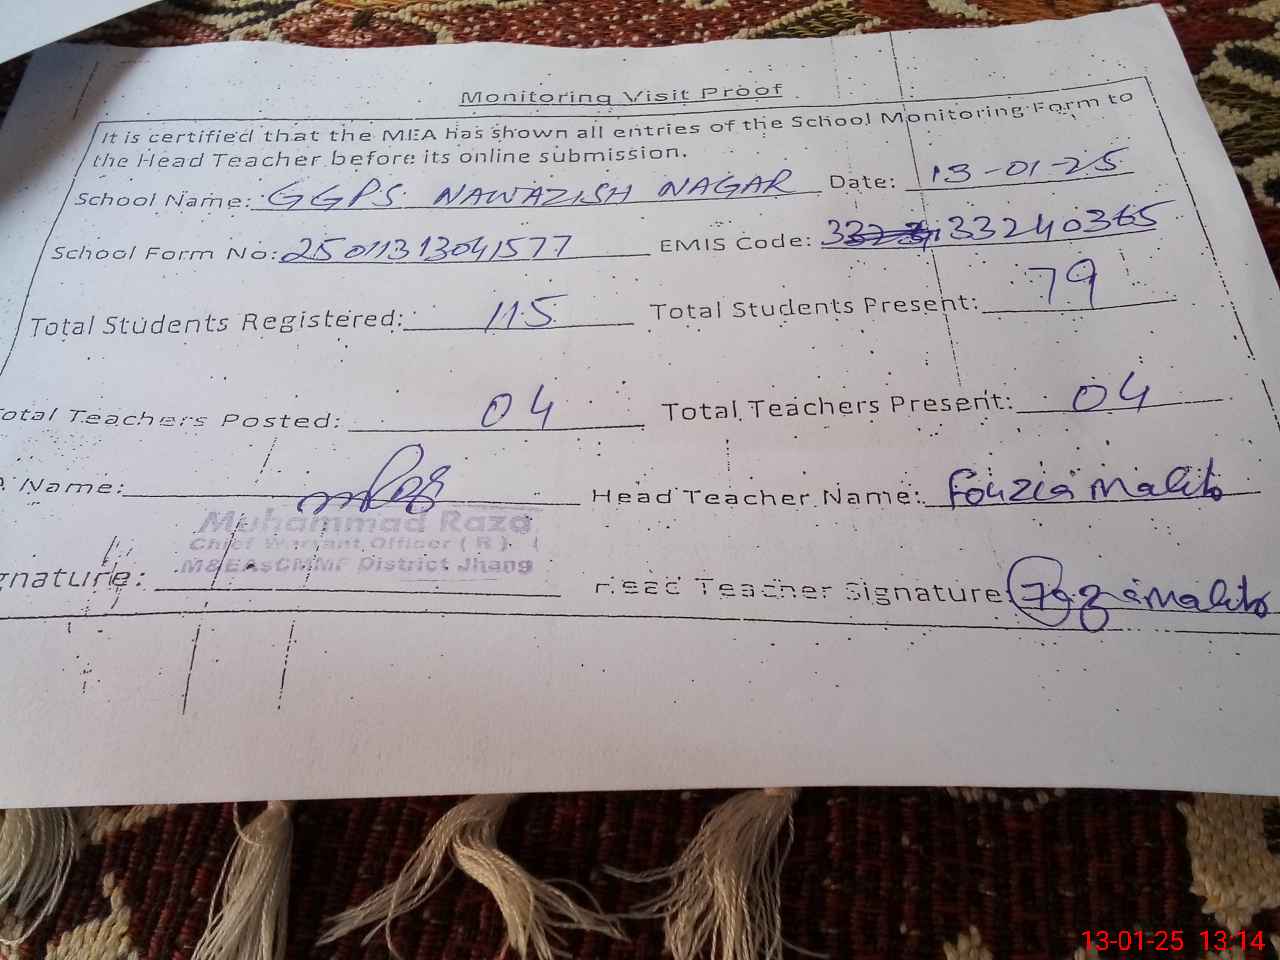 Monitoring Visit Proof
It is certified that the MEA has shown all entries of the School Monitoring Form to
the Head Teacher before its online submission.
School Name: GGPS NAWAZISH NAGAR Date: 13-01-25
School Form No: 25011313041577 EMIS Code: 33240365
Total Students Registered: 115 Total Students Present: 79
otal Teachers Posted: 04 Total Teachers Present: 04
Name: Head Teacher Name: Fouzia Malik
Muhammad Raza
Chief Warrant Officer ( R )
M&EAsCMMF District Jhang
gnature: Head Teacher Signature
13-01-25 13:14